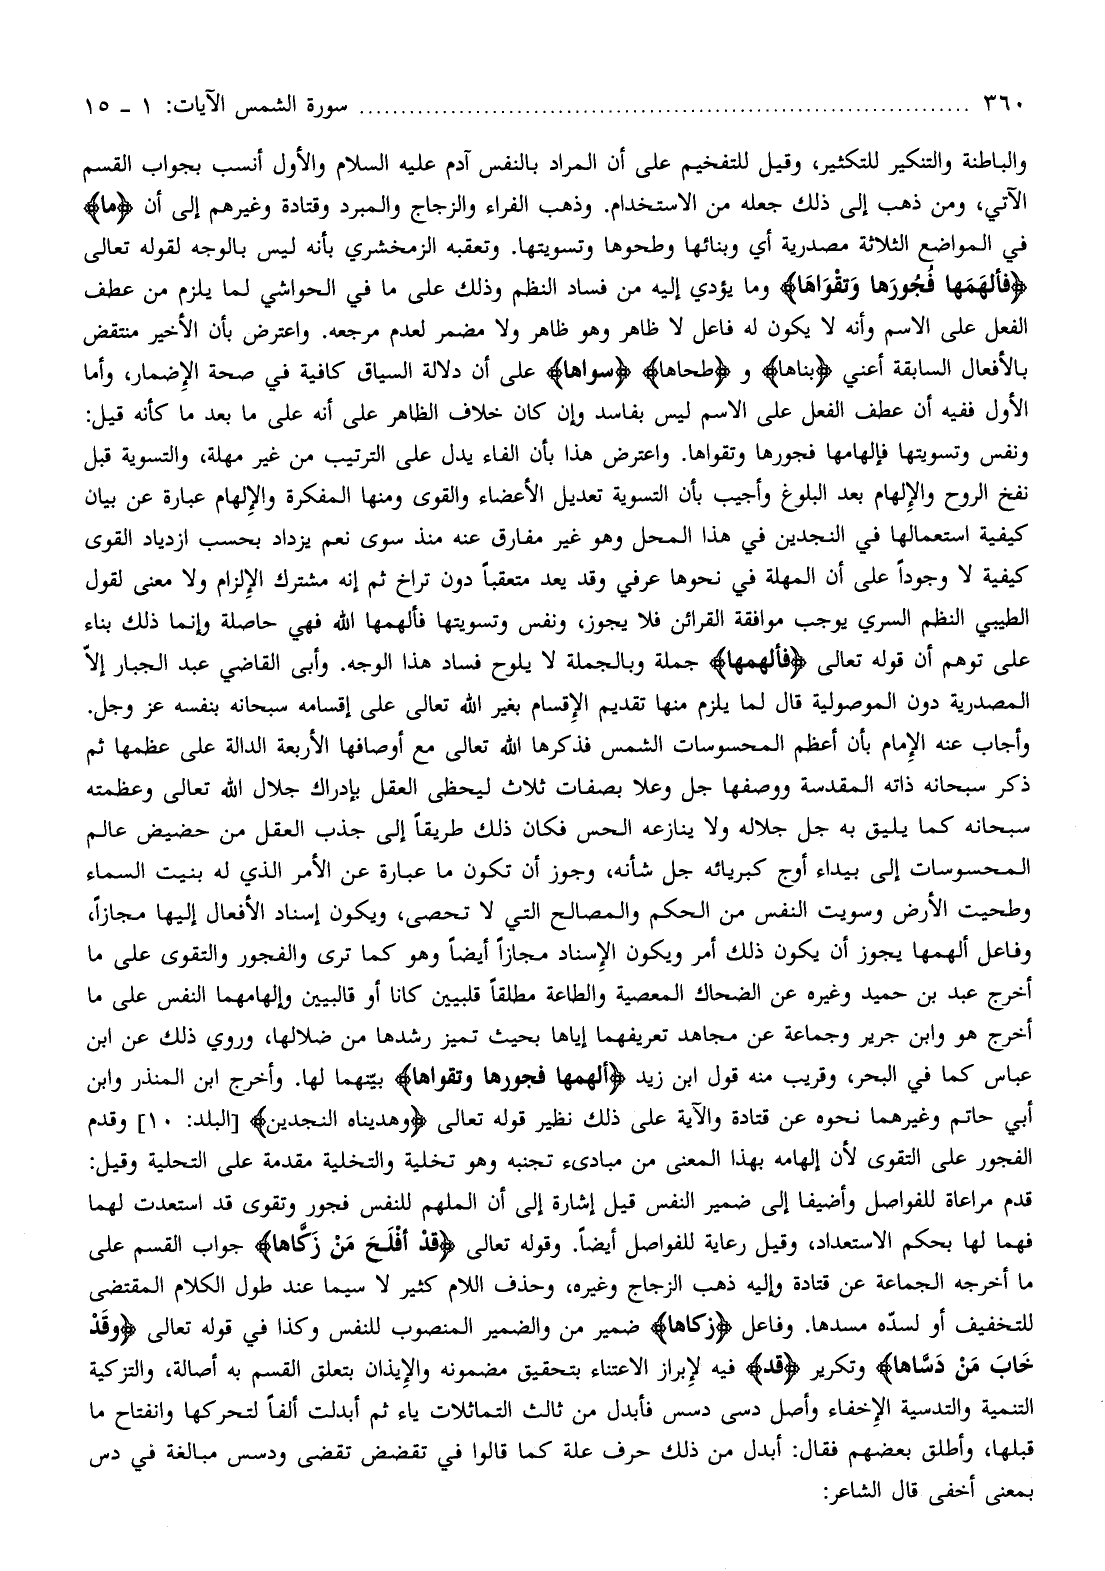 ٣٦٠ ........................................ سورة الشمس الآيات: ١ ـ ١٥
والباطنة والتنكير للتكثير، وقيل للتفخيم على أن المراد بالنفس آدم عليه السلام والأول أنسب بجواب القسم
الآتي، ومن ذهب إلى ذلك جعله من الاستخدام. وذهب الفراء والزجاج والمبرد وقتادة وغيرهم إلى أن ﴿ما﴾
في المواضع الثلاثة مصدرية أي وبنائها وطحوها وتسويتها. وتعقبه الزمخشري بأنه ليس بالوجه لقوله تعالى
﴿فألهَمَها فُجُورَها وَتقْوَاهَا﴾ وما يؤدي إليه من فساد النظم وذلك على ما في الحواشي لما يلزم من عطف
الفعل على الاسم وأنه لا يكون له فاعل لا ظاهر وهو ظاهر ولا مضمر لعدم مرجعه. واعترض بأن الأخير منتقض
بالأفعال السابقة أعني ﴿بناها﴾ و ﴿طحاها﴾ ﴿سواها﴾ على أن دلالة السياق كافية في صحة الإِضمار، وأما
الأول ففيه أن عطف الفعل على الاسم ليس بفاسد وإن كان خلاف الظاهر على أنه على ما بعد ما كأنه قيل:
ونفس وتسويتها فإلهامها فجورها وتقواها. واعترض هذا بأن الفاء يدل على الترتيب من غير مهلة، والتسوية قبل
نفخ الروح والإِلهام بعد البلوغ وأجيب بأن التسوية تعديل الأعضاء والقوى ومنها المفكرة والإِلهام عبارة عن بيان
كيفية استعمالها في النجدين في هذا المحل وهو غير مفارق عنه منذ سوى نعم يزداد بحسب ازدياد القوى
كيفية لا وجوداً على أن المهلة في نحوها عرفي وقد يعد متعقباً دون تراخ ثم إنه مشترك الإِلزام ولا معنى لقول
الطيبي النظم السري يوجب موافقة القرائن فلا يجوز، ونفس وتسويتها فألهمها الله فهي حاصلة وإنما ذلك بناء
على توهم أن قوله تعالى ﴿فألهمها﴾ جملة وبالجملة لا يلوح فساد هذا الوجه. وأبى القاضي عبد الجبار إلاّ
المصدرية دون الموصولية قال لما يلزم منها تقديم الإِقسام بغير الله تعالى على إقسامه سبحانه بنفسه عز وجل.
وأجاب عنه الإِمام بأن أعظم المحسوسات الشمس فذكرها الله تعالى مع أوصافها الأربعة الدالة على عظمها ثم
ذكر سبحانه ذاته المقدسة ووصفها جل وعلا بصفات ثلاث ليحظى العقل بإدراك جلال الله تعالى وعظمته
سبحانه كما يليق به جل جلاله ولا ينازعه الحس فكان ذلك طريقاً إلى جذب العقل من حضيض عالم
المحسوسات إلى بيداء أوج كبريائه جل شأنه، وجوز أن تكون ما عبارة عن الأمر الذي له بنيت السماء
وطحيت الأرض وسويت النفس من الحكم والمصالح التي لا تحصى، ويكون إسناد الأفعال إليها مجازاً،
وفاعل ألهمها يجوز أن يكون ذلك أمر ويكون الإِسناد مجازاً أيضاً وهو كما ترى والفجور والتقوى على ما
أخرج عبد بن حميد وغيره عن الضحاك المعصية والطاعة مطلقاً قلبيين كانا أو قالبيين وإلهامهما النفس على ما
أخرج هو وابن جرير وجماعة عن مجاهد تعريفهما إياها بحيث تميز رشدها من ضلالها، وروي ذلك عن ابن
عباس كما في البحر، وقريب منه قول ابن زيد ﴿ألهمها فجورها وتقواها﴾ بيّنهما لها. وأخرج ابن المنذر وابن
أبي حاتم وغيرهما نحوه عن قتادة والآية على ذلك نظير قوله تعالى ﴿وهديناه النجدين﴾ [البلد: ١٠] وقدم
الفجور على التقوى لأن إلهامه بهذا المعنى من مبادىء تجنبه وهو تخلية والتخلية مقدمة على التحلية وقيل:
قدم مراعاة للفواصل وأضيفا إلى ضمير النفس قيل إشارة إلى أن الملهم للنفس فجور وتقوى قد استعدت لهما
فهما لها بحكم الاستعداد، وقيل رعاية للفواصل أيضاً. وقوله تعالى ﴿قدْ أفْلَحَ مَنْ زَكَّاها﴾ جواب القسم على
ما أخرجه الجماعة عن قتادة وإليه ذهب الزجاج وغيره، وحذف اللام كثير لا سيما عند طول الكلام المقتضى
للتخفيف أو لسدّه مسدها. وفاعل ﴿زكاها﴾ ضمير من والضمير المنصوب للنفس وكذا في قوله تعالى ﴿وقَدْ
خَابَ مَنْ دَسَّاها﴾ وتكرير ﴿قد﴾ فيه لإِبراز الاعتناء بتحقيق مضمونه والإِيذان بتعلق القسم به أصالة، والتزكية
التنمية والتدسية الإِخفاء وأصل دسى دسس فأبدل من ثالث التماثلات ياء ثم أبدلت ألفاً لتحركها وانفتاح ما
قبلها، وأطلق بعضهم فقال: أبدل من ذلك حرف علة كما قالوا في تقضض تقضى ودسس مبالغة في دس
بمعنى أخفى قال الشاعر: